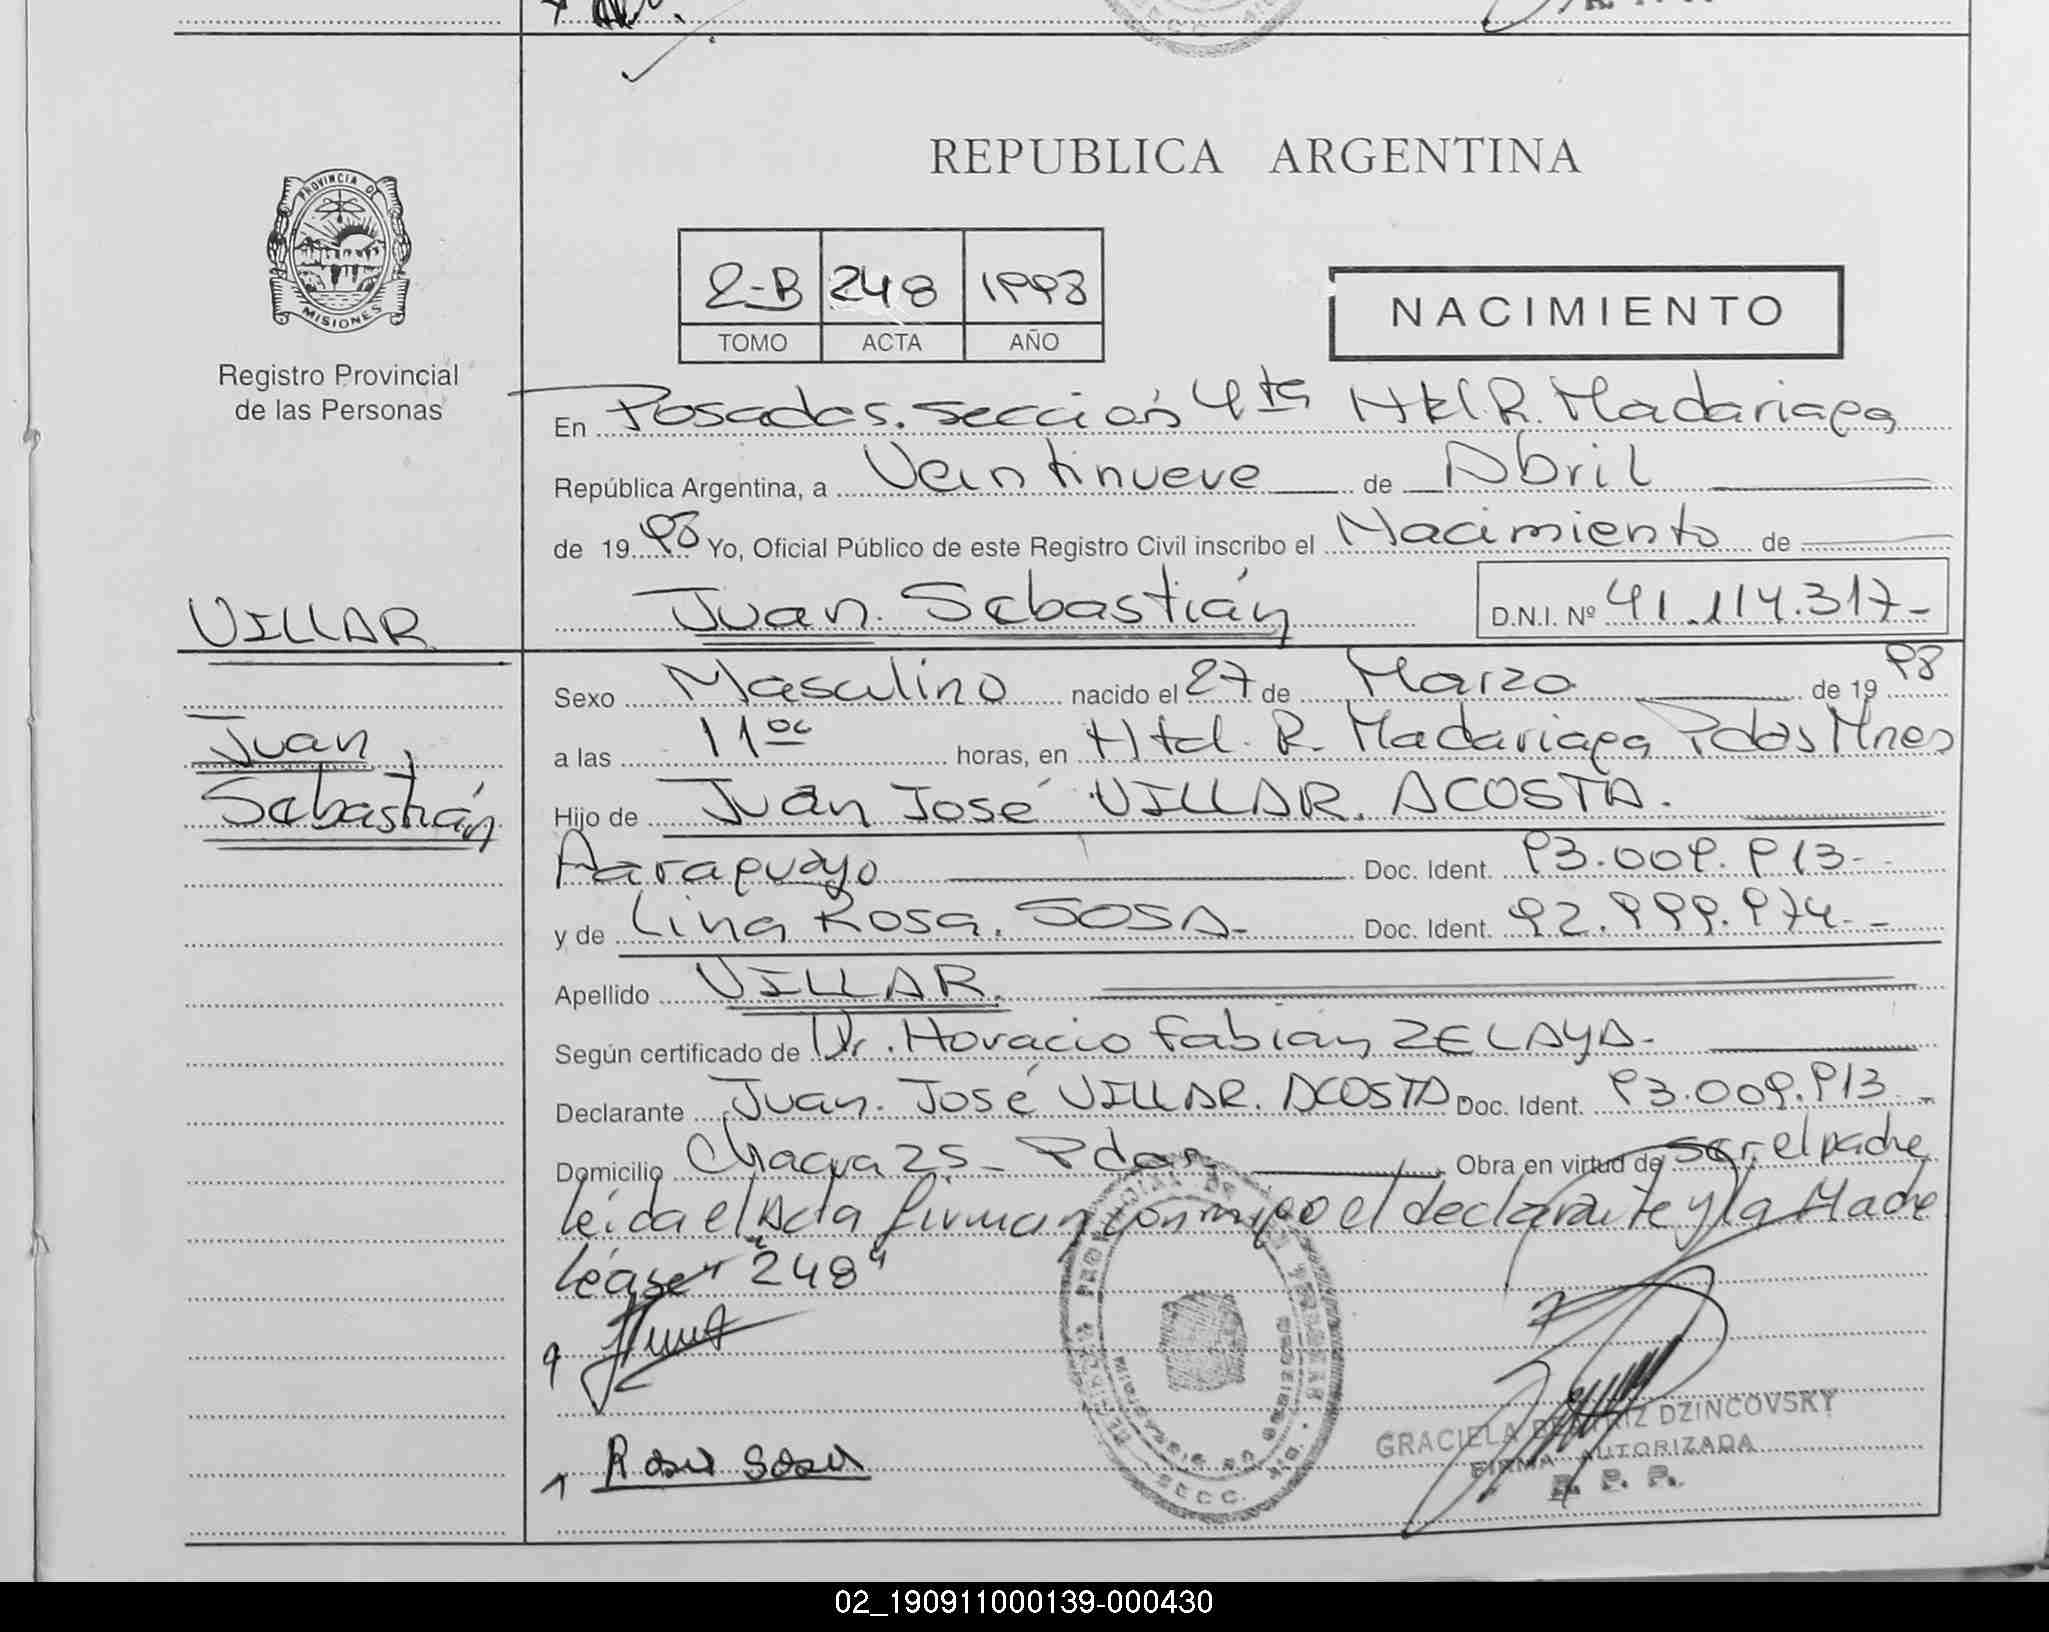 REPUBLICA ARGENTINA
PROVINCIA DE
MISIONES
Registro Provincial
de las Personas
2-B 248 1998
TOMO ACTA AÑO
NACIMIENTO
En Posadas. Sección 4ta Htal. R. Madariaga
República Argentina, a Veintinueve de Abril
de 19 98 Yo, Oficial Público de este Registro Civil inscribo el Nacimiento de
Juan Sebastián D.N.I. Nº 41.114.317-
VILLAR
Juan
Sebastián
Sexo Masculino nacido el 27 de Marzo de 19 98
a las 11 00 horas, en Htal. R. Madariaga Pdas Mnes
Hijo de Juan José VILLAR. ACOSTA.
Paraguayo Doc. Ident. 93.009.913-
y de Lina Rosa. SOSA- Doc. Ident. 92.999.974-
Apellido VILLAR.
Según certificado de Dr. Horacio Fabián ZELAYA-
Declarante Juan José VILLAR. ACOSTA Doc. Ident. 93.009.913-
Domicilio Chacra 25 - Pdas Obra en virtud de ser el padre
leída el Acta firman conmigo el declarante y la Madre
léase "248"
Rosa Sosa
GRACIELA BEATRIZ DZINCOVSKY
FIRMA AUTORIZADA
R. P. P.
02_190911000139-000430